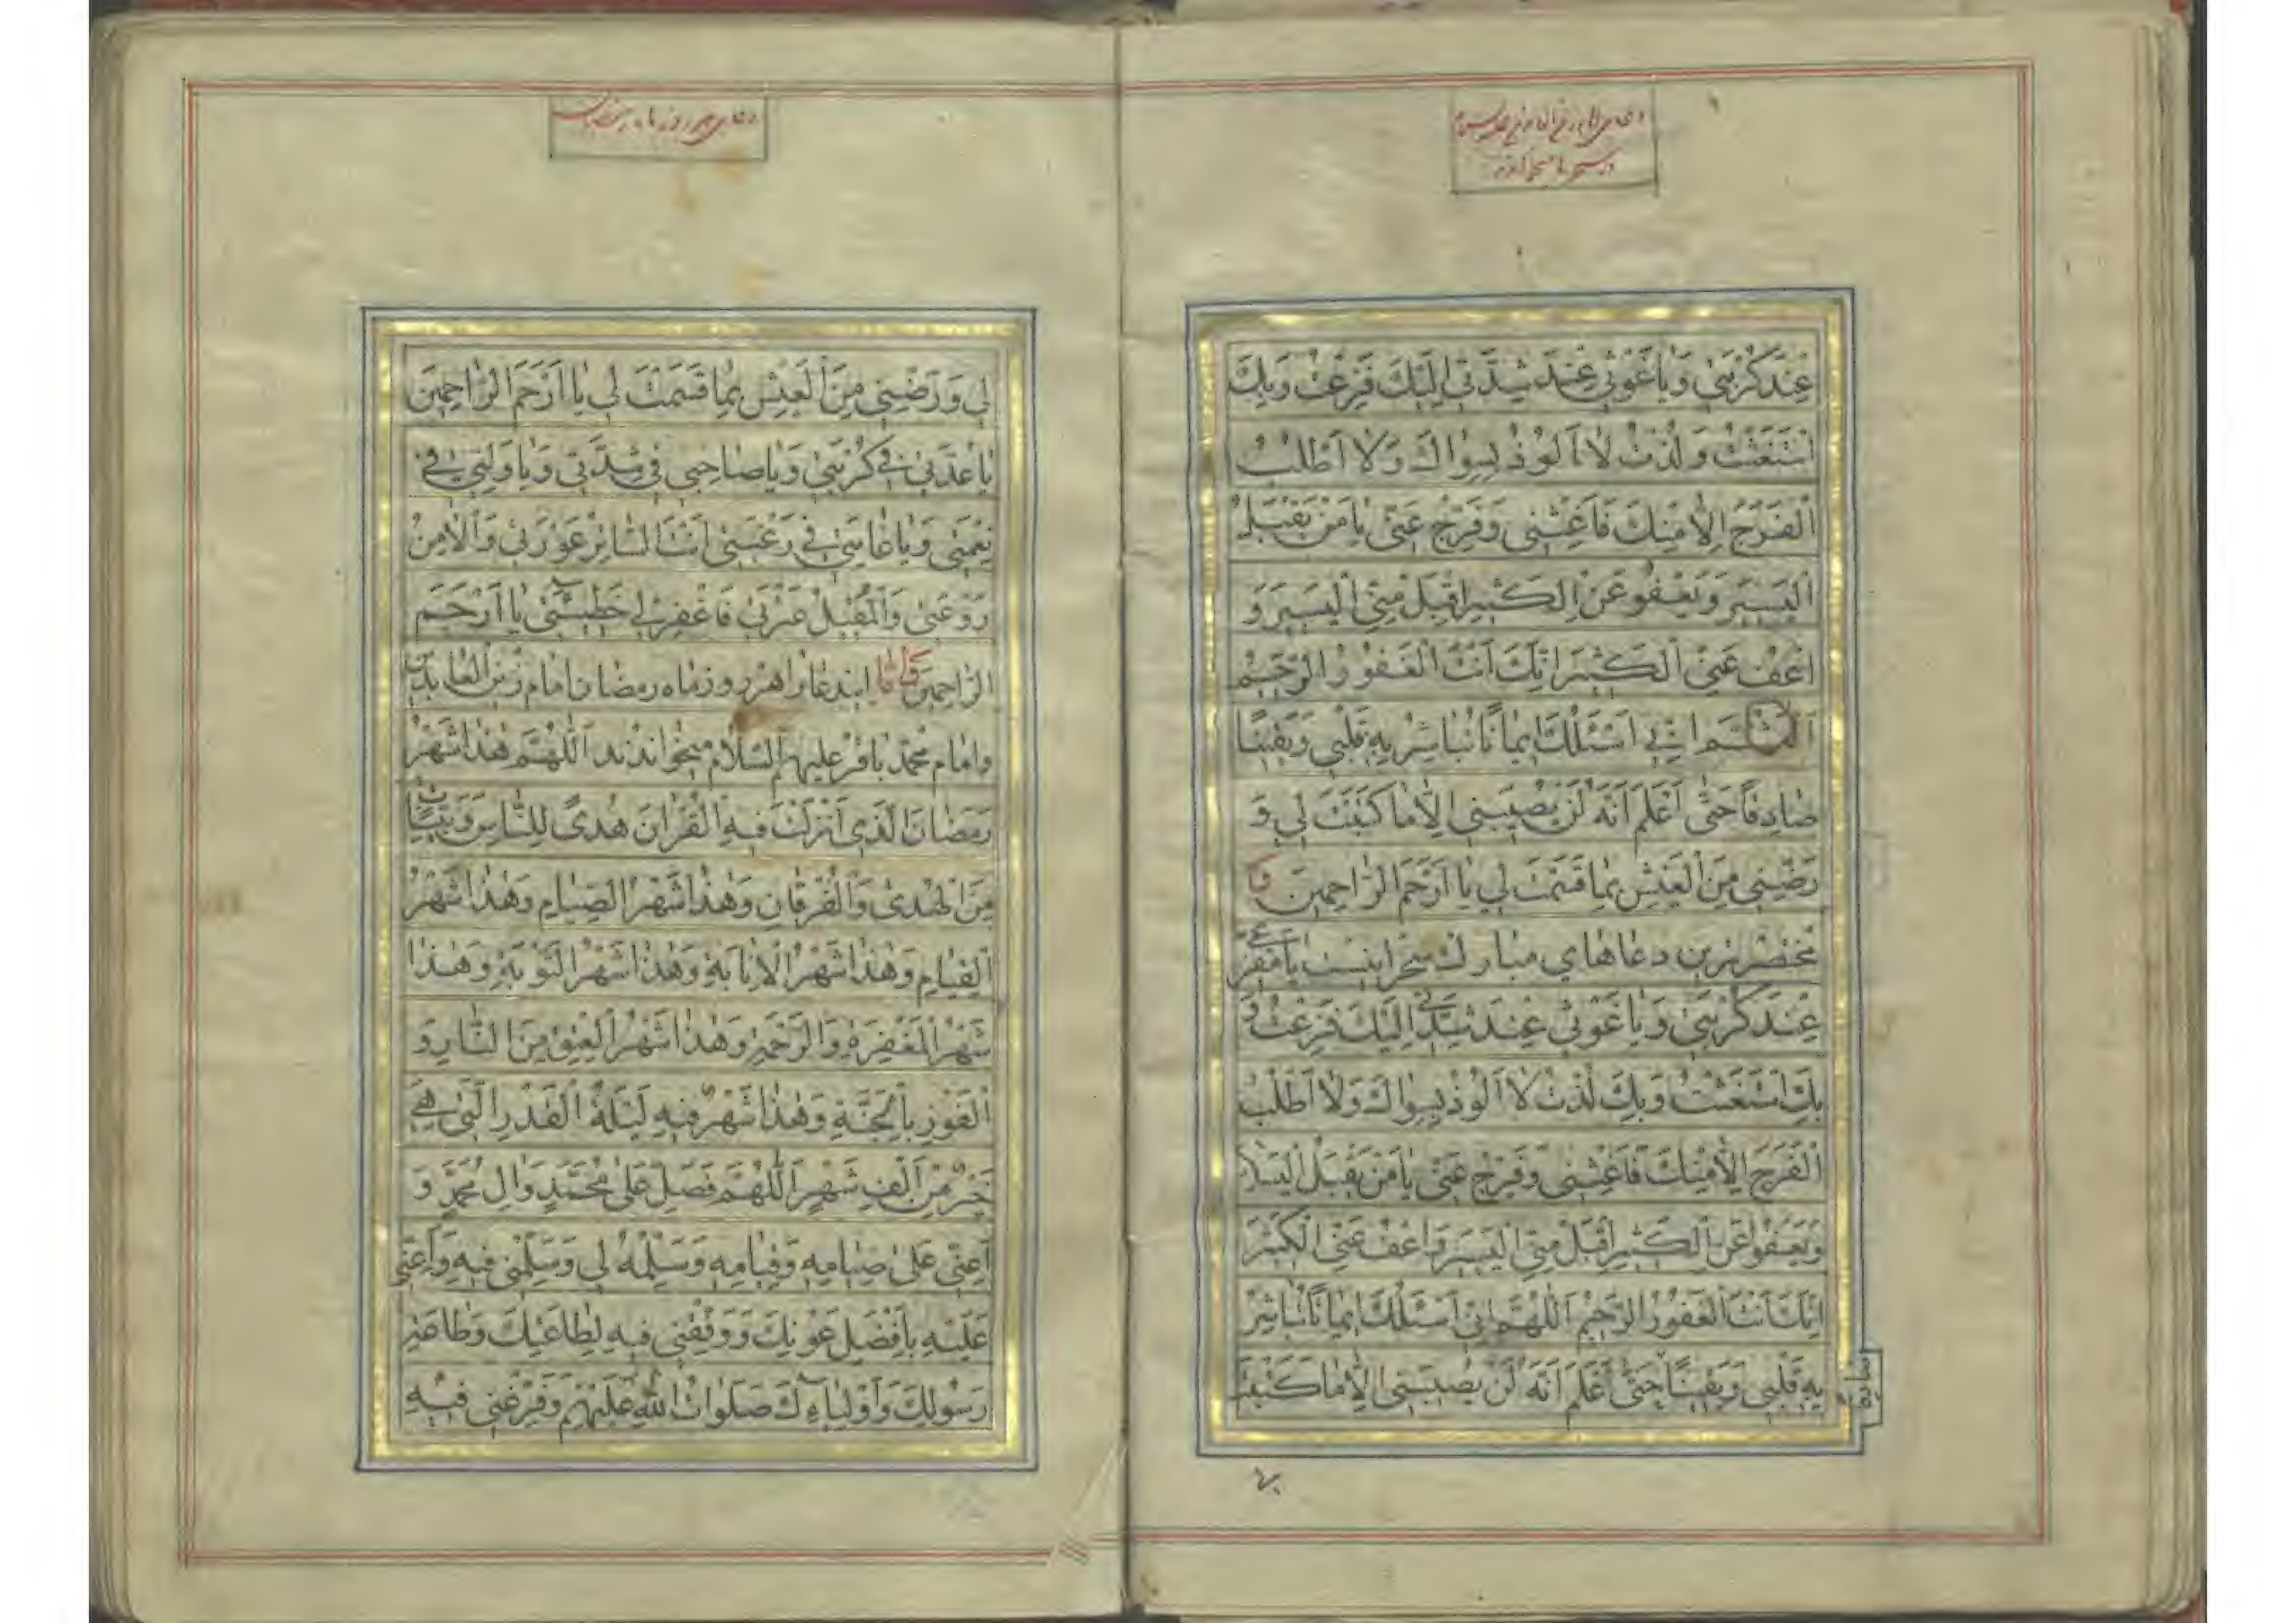 عِنْدَ كُرْبَتِي وَيَا غَوْثِي عِنْدَ شِدَّتِي اِلَيْكَ فَزِعْتُ وَبِكَ
اسْتَغَثْتُ وَلُذْتُ لَا اَلُوذُ بِسِوَاكَ وَلَا اَطْلُبُ
الْفَرَجَ اِلَّا مِنْكَ فَاَغِثْنِي وَفَرِّجْ عَنِّي يَا مَنْ يَقْبَلُ
الْيَسِيرَ وَيَعْفُو عَنِ الْكَثِيرِ اِقْبَلْ مِنِّي الْيَسِيرَ وَ
اعْفُ عَنِّي الْكَثِيرَ اِنَّكَ اَنْتَ الْغَفُورُ الرَّحِيمُ
اَللّٰهُمَّ اِنِّي اَسْئَلُكَ اِيمَانًا تُبَاشِرُ بِهِ قَلْبِي وَيَقِينًا
صَادِقًا حَتَّى اَعْلَمَ اَنَّهُ لَنْ يُصِيبَنِي اِلَّا مَا كَتَبْتَ لِي وَ
رَضِّنِي مِنَ الْعَيْشِ بِمَا قَسَمْتَ لِي يَا اَرْحَمَ الرَّاحِمِينَ
مختصرترین دعاهای مبارك سحر اینست یَا مَفْزَعِي
عِنْدَ كُرْبَتِي وَيَا غَوْثِي عِنْدَ شِدَّتِي اِلَيْكَ فَزِعْتُ وَ
بِكَ اسْتَغَثْتُ وَبِكَ لُذْتُ لَا اَلُوذُ بِسِوَاكَ وَلَا اَطْلُبُ
الْفَرَجَ اِلَّا مِنْكَ فَاَغِثْنِي وَفَرِّجْ عَنِّي يَا مَنْ يَقْبَلُ
وَيَعْفُو عَنِ الْكَثِيرِ اِقْبَلْ مِنِّي الْيَسِيرَ وَاعْفُ عَنِّي الْكَثِيرَ
اِنَّكَ اَنْتَ الْغَفُورُ الرَّحِيمُ اَللّٰهُمَّ اِنِّي اَسْئَلُكَ اِيمَانًا تُبَاشِرُ
بِهِ قَلْبِي وَيَقِينًا حَتَّى اَعْلَمَ اَنَّهُ لَنْ يُصِيبَنِي اِلَّا مَا كَتَبْتَ
دعای هر روز ماه رمضان
لِي وَرَضِّنِي مِنَ الْعَيْشِ بِمَا قَسَمْتَ لِي يَا اَرْحَمَ الرَّاحِمِينَ
يَا عُدَّتِي فِي كُرْبَتِي وَيَا صَاحِبِي فِي شِدَّتِي وَيَا وَلِيِّي فِي
نِعْمَتِي وَيَا غَايَتِي فِي رَغْبَتِي اَنْتَ السَّاتِرُ عَوْرَتِي وَالْاٰمِنُ
رَوْعَتِي وَالْمُقِيلُ عَثْرَتِي فَاغْفِرْ لِي خَطِيئَتِي يَا اَرْحَمَ
الرَّاحِمِينَ ایندعا را هر روز ماه رمضان امام زین العابدین
وامام محمد باقر علیهم السلام میخواندند اَللّٰهُمَّ هٰذَا شَهْرُ
رَمَضَانَ الَّذِي اَنْزَلْتَ فِيهِ الْقُرْاٰنَ هُدًى لِلنَّاسِ وَبَيِّنَاتٍ
مِنَ الْهُدٰى وَالْفُرْقَانِ وَهٰذَا شَهْرُ الصِّيَامِ وَهٰذَا شَهْرُ
الْقِيَامِ وَهٰذَا شَهْرُ الْاِنَابَةِ وَهٰذَا شَهْرُ التَّوْبَةِ وَهٰذَا
شَهْرُ الْمَغْفِرَةِ وَالرَّحْمَةِ وَهٰذَا شَهْرُ الْعِتْقِ مِنَ النَّارِ وَ
الْفَوْزِ بِالْجَنَّةِ وَهٰذَا شَهْرٌ فِيهِ لَيْلَةُ الْقَدْرِ الَّتِي هِيَ
خَيْرٌ مِنْ اَلْفِ شَهْرٍ اَللّٰهُمَّ فَصَلِّ عَلٰى مُحَمَّدٍ وَاٰلِ مُحَمَّدٍ وَ
اَعِنِّي عَلٰى صِيَامِهِ وَقِيَامِهِ وَسَلِّمْهُ لِي وَسَلِّمْنِي فِيهِ وَاَعِنِّي
عَلَيْهِ بِاَفْضَلِ عَوْنِكَ وَوَفِّقْنِي فِيهِ لِطَاعَتِكَ وَطَاعَةِ
رَسُولِكَ وَاَوْلِيَاءِكَ صَلَوَاتُ اللّٰهِ عَلَيْهِمْ وَفَرِّغْنِي فِيهِ